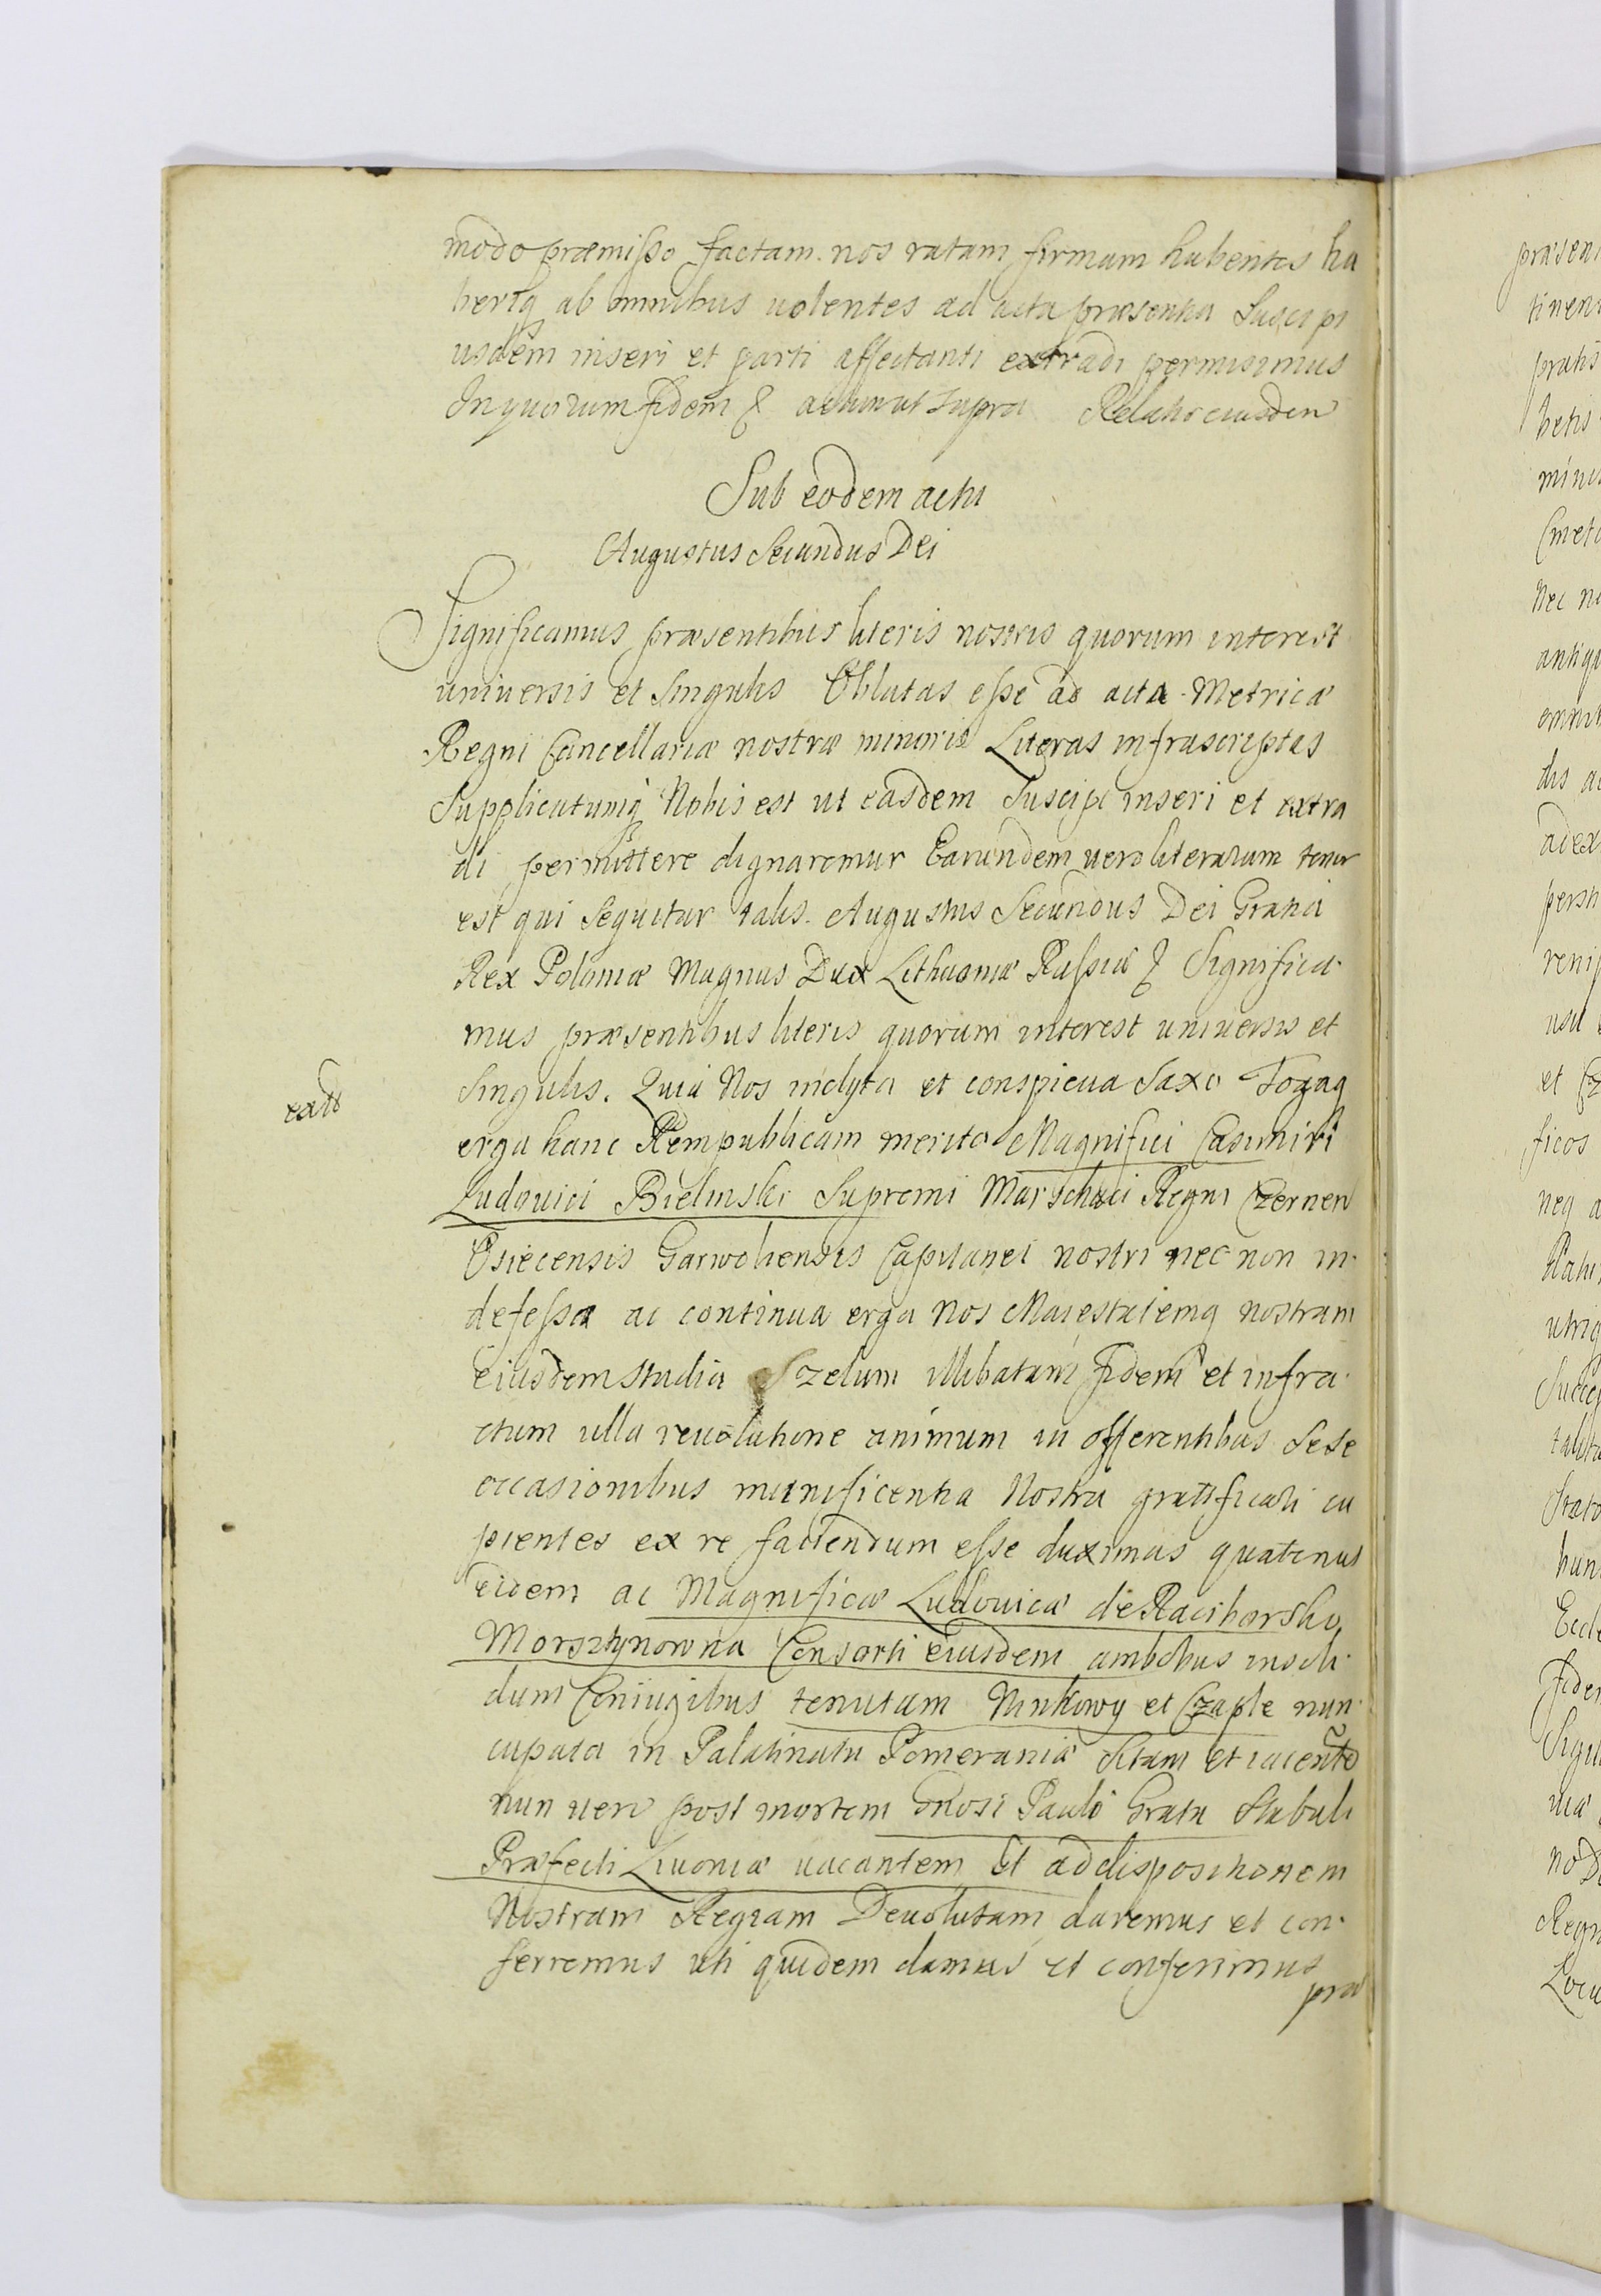 modo præmisso factam nos ratam firmam habentes ha
beriq ab omnibus uolentes ad acta præsentia Suscipi
usdem inseri et parti affectanti extradi permisimus
In quorum fidem & actum ut supra Relatio eiusdem
Sub eodem actu
Augustus Secundus Dei
Significamus præsentibus literis nostris quorum interest
uniuersis et Singulis Oblatas esse ad acta Metricæ
Regni Cancellariæ nostræ minoris Literas infrascriptas
Supplicatumq Nobis est ut easdem Suscipi inseri et extra
di permittere dignaremur Earundem uero literarum tenor
est qui Sequitur talis. Augustus Secundus Dei Gratia
Rex Poloniæ Magnus Dux Lithuaniæ Russiæ & Significa
mus præsentibus literis quorum interest uniuersis et
Singulis. Quia Nos inclyta et conspicua Saxo Togaq
extt
erga hanc Rempublicam merita Magnifici Casimiri
Ludouici Bielinski Supremi Marschalci Regni Czernen
Osiecensis Garwoliensis Capitanei nostri nec non in
defessa ac continua erga Nos Maiestatemq nostram
eiusdem studia & zelum illibatam fidem et infra
ctum ulla reuolutione animum in offerentibus Sese
occasionibus munificentia Nostra gratificari cu
pientes ex re faciendum esse duximus quatenus
eidem ac Magnificæ Ludouicæ de Raciborsko
Morsztynowna Consorti Eiusdem ambobus in soli
dum Coniugibus tenutam Ninkowy et Czaple nun
cupata in Palatinatu Pomeraniæ Sitam et iacente
nun uero post mortem Gnosi Pauli Grata Stabuli
Præfecti Liuoniæ uacantem Et ad dispositionem
Nostram Regiam Deuolutam daremus et con
ferremus uti quidem damus et conferimus
præ
præsen
tinen
pratis
betis
minu
Cmeto
Nec no
antiqu
omni
tis a
ad ex
person
reni
usu
et Cz
ficos
neq a
Ratu
utriq
Succe
talita
hun
Eccle
fidem
Sigil
niæ
no D
Regn
Locu